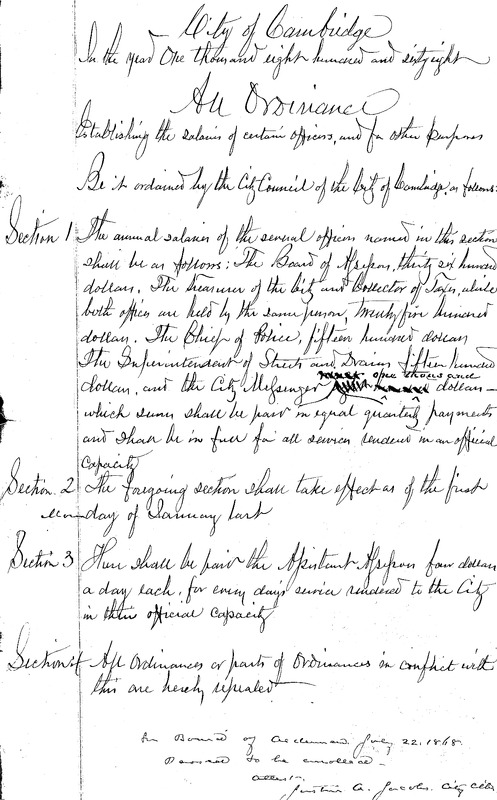 City of Cambridge
In the year One thousand eight hundred and sixty eight
An Ordinance
Establishing the salaries of certain officers, and for other purposes
Be it ordained by the City Council of the City of Cambridge as follows:
Section 1 The annual salaries of the several officers named in this section
shall be as follows: The Board of Assessors, thirty six hundred
dollars. The treasurer of the City and Collector of Taxes, while
both offices are held by the same person, twenty five hundred
dollars. The Chief of Police, fifteen hundred dollars
The Superintendent of Streets and Drains fifteen hundred
one thousand
dollars, and the City Messenger dollars—
which sums shall be paid in equal quarterly payments
and shall be in full for all services rendered in an official
capacity
Section. 2 The foregoing section shall take effect as of the first
day of January last
Section 3 There shall be paid the Assistant Assessors four dollars
a day each, for every days service rendered to the City
in their official capacity
Section 4 All Ordinances or parts of Ordinances in conflict with
this are hereby repealed
In Board of Aldermen July 22. 1868.
Passed to be enrolled—
Attest.
Justin A. Jacobs. City Clerk